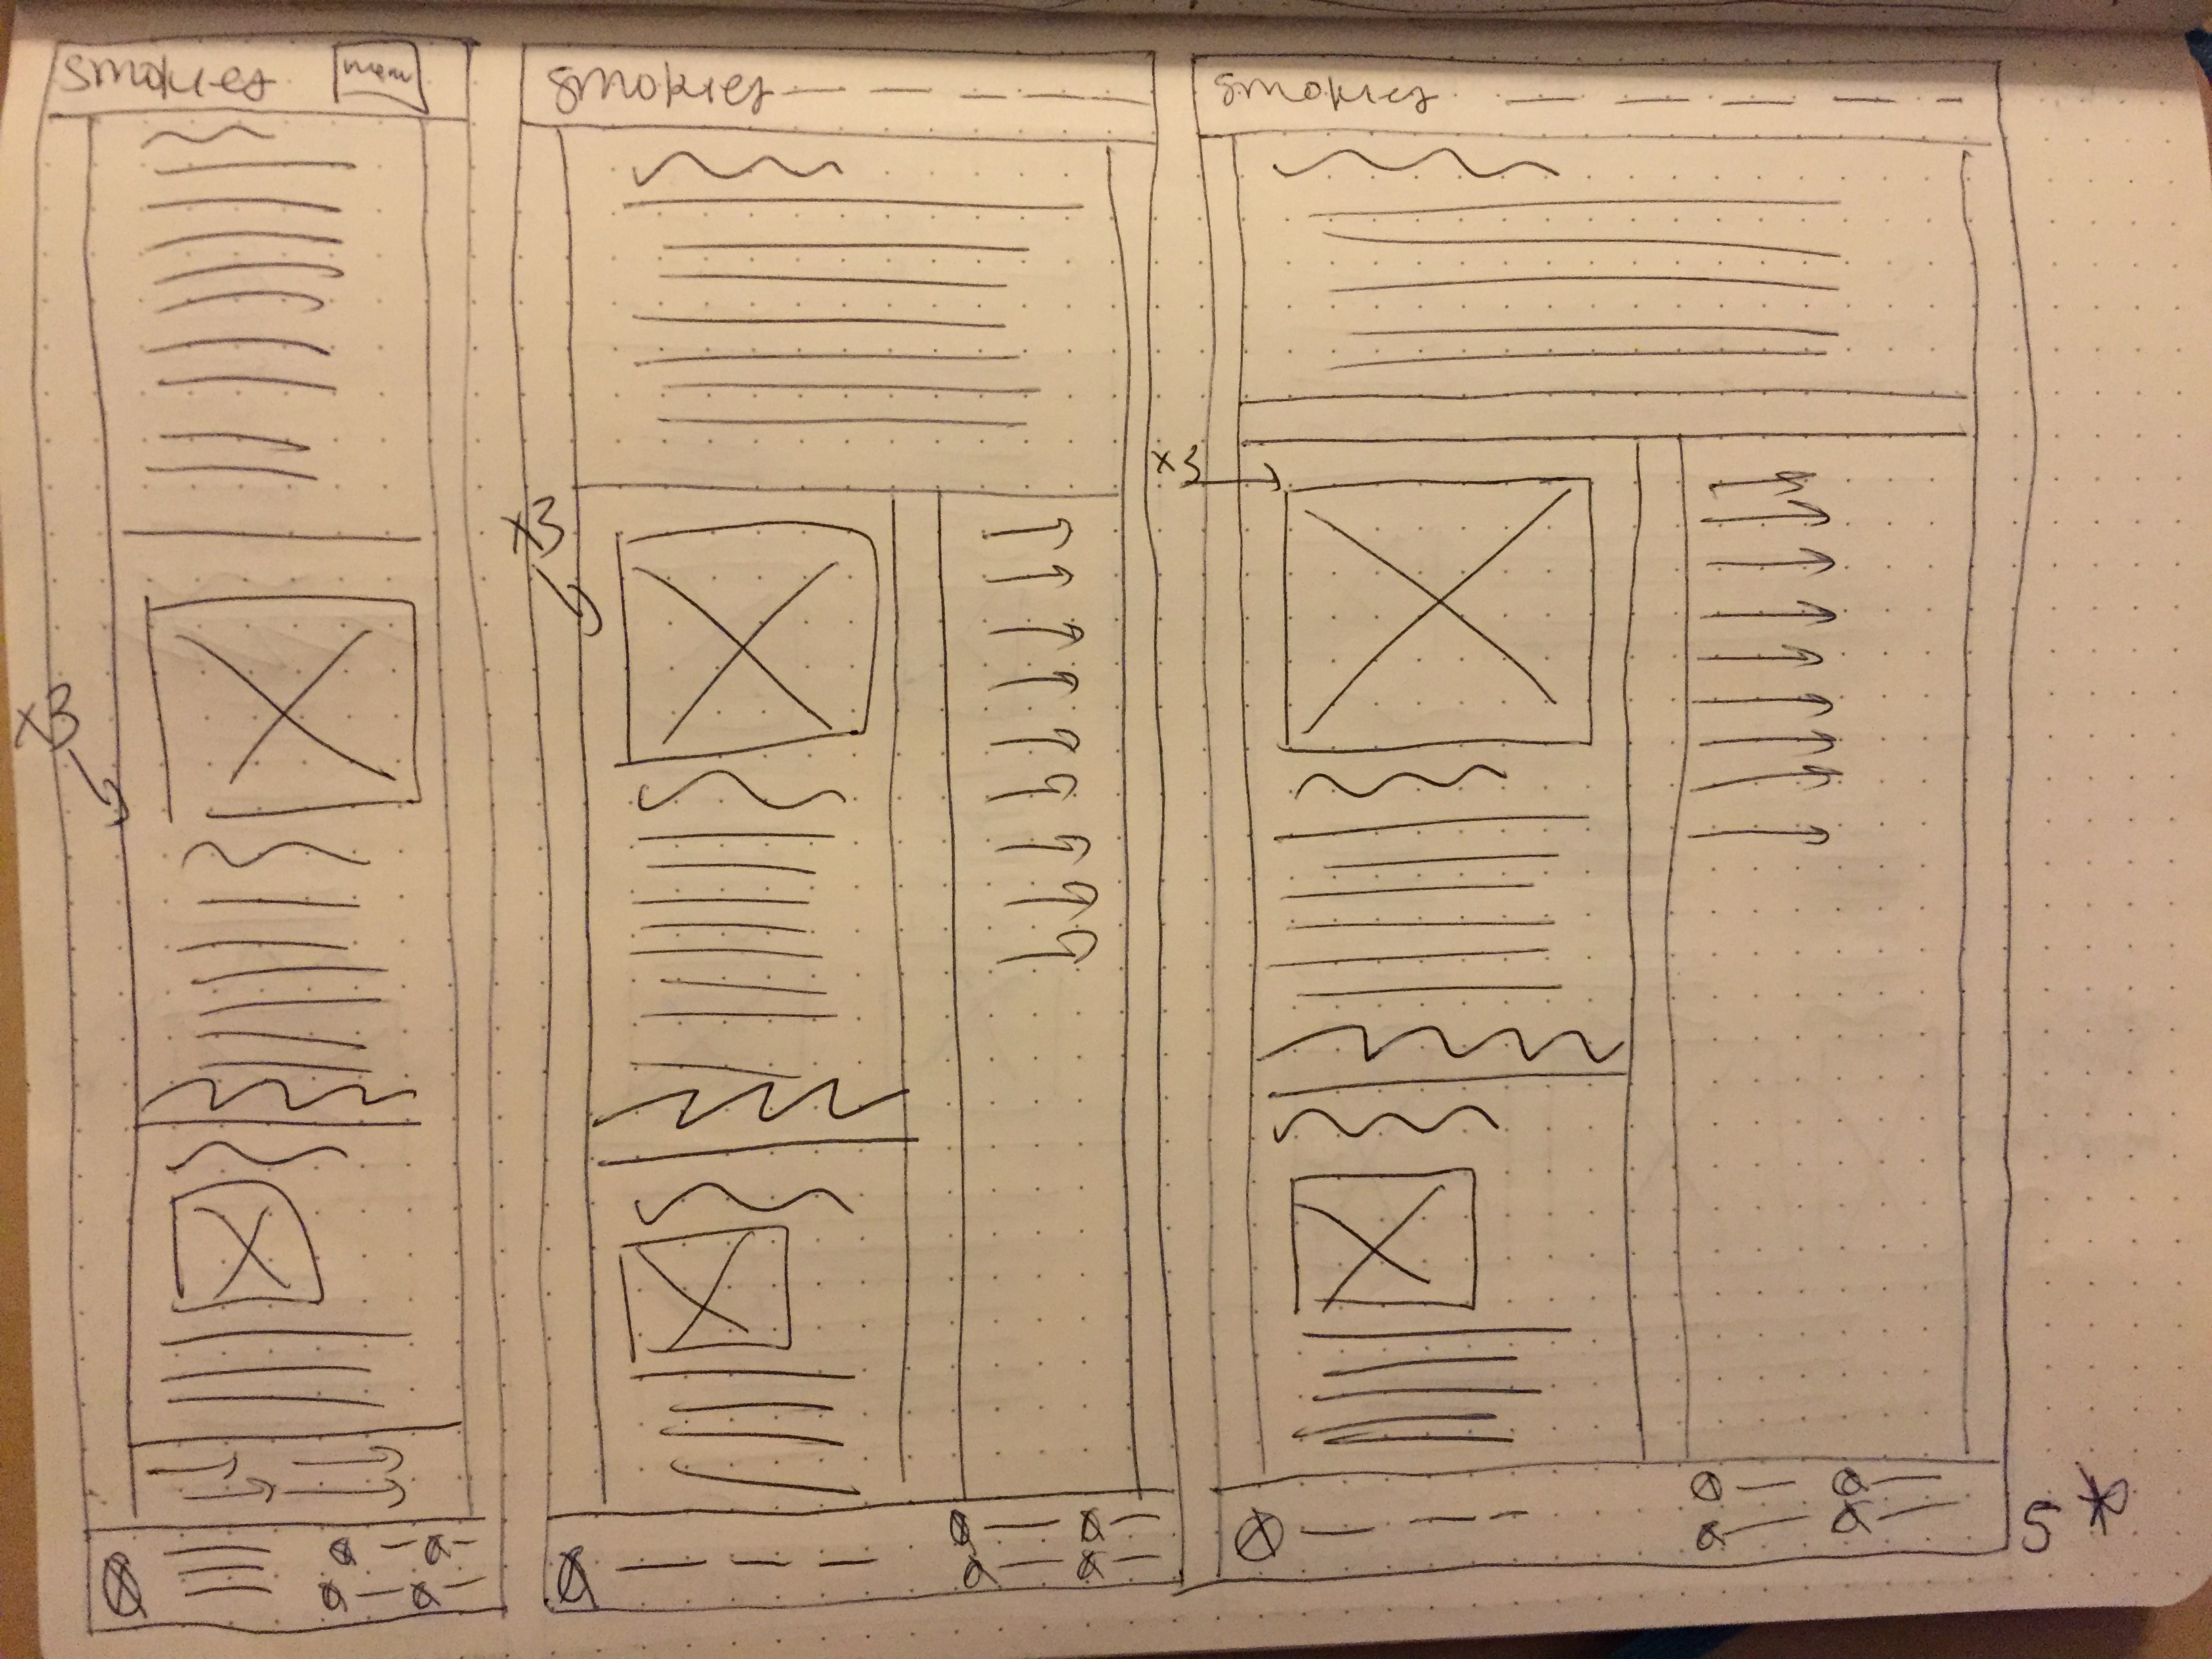 smokies menu
x3
smokies
x3
smokies
x3
5 *